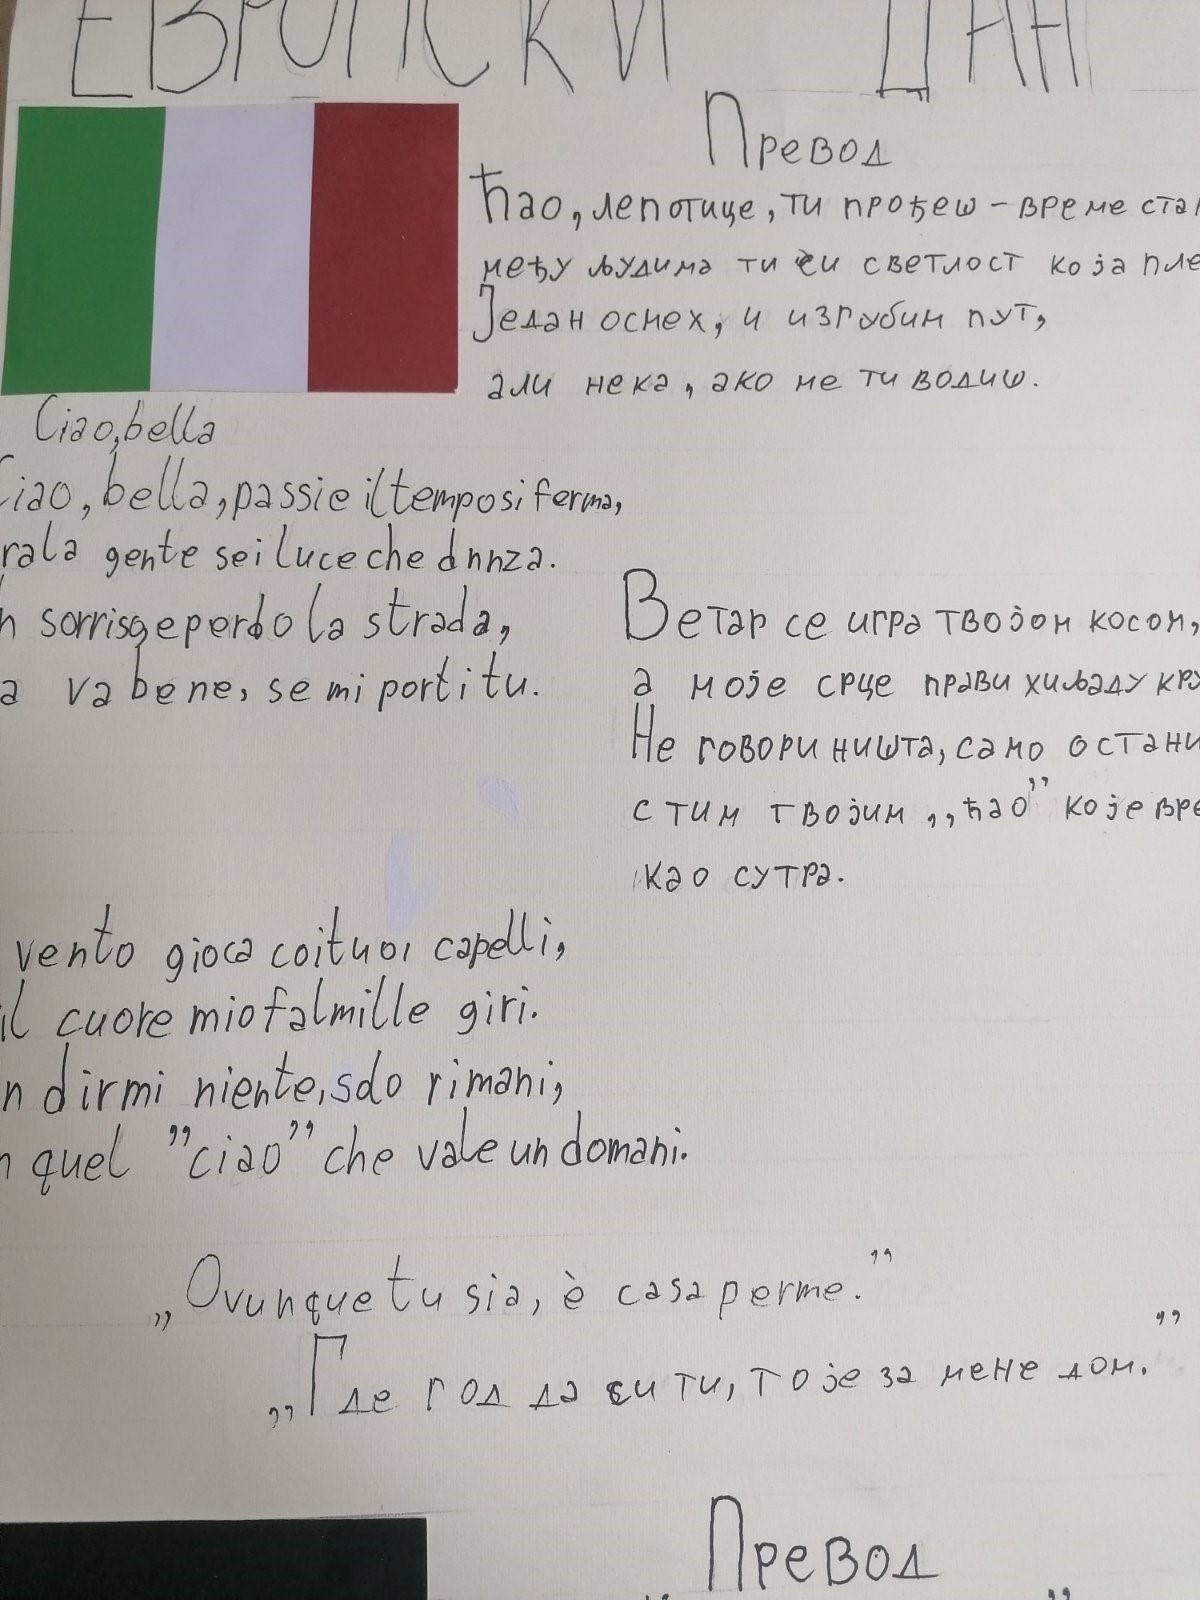 ЕВРОПСКИ ДАН
Превод
Ћао, лепотице, ти прођеш – време
међу људима ти си светлост која
Један осмех, и изгубим пут,
али нека, ако ме ти водиш.
Ciao, bella
Ciao, bella, passi e il tempo si ferma,
la gente sei luce che dnnza.
sorriso e perdo la strada,
va bene, se mi porti tu.
Ветар се игра твојом косом,
а моје срце прави хиљаду
Не говори ништа, само остани
с тим твојим „ћао” које
као сутра.
vento gioca coi tuoi capelli,
il cuore mio fa lmille giri.
dirmi niente, sdo rimani,
quel ”ciao” che vale un domani.
„Ovunque tu sia, è casa per me.”
„Где год да си ти, то је за мене дом.”
Превод